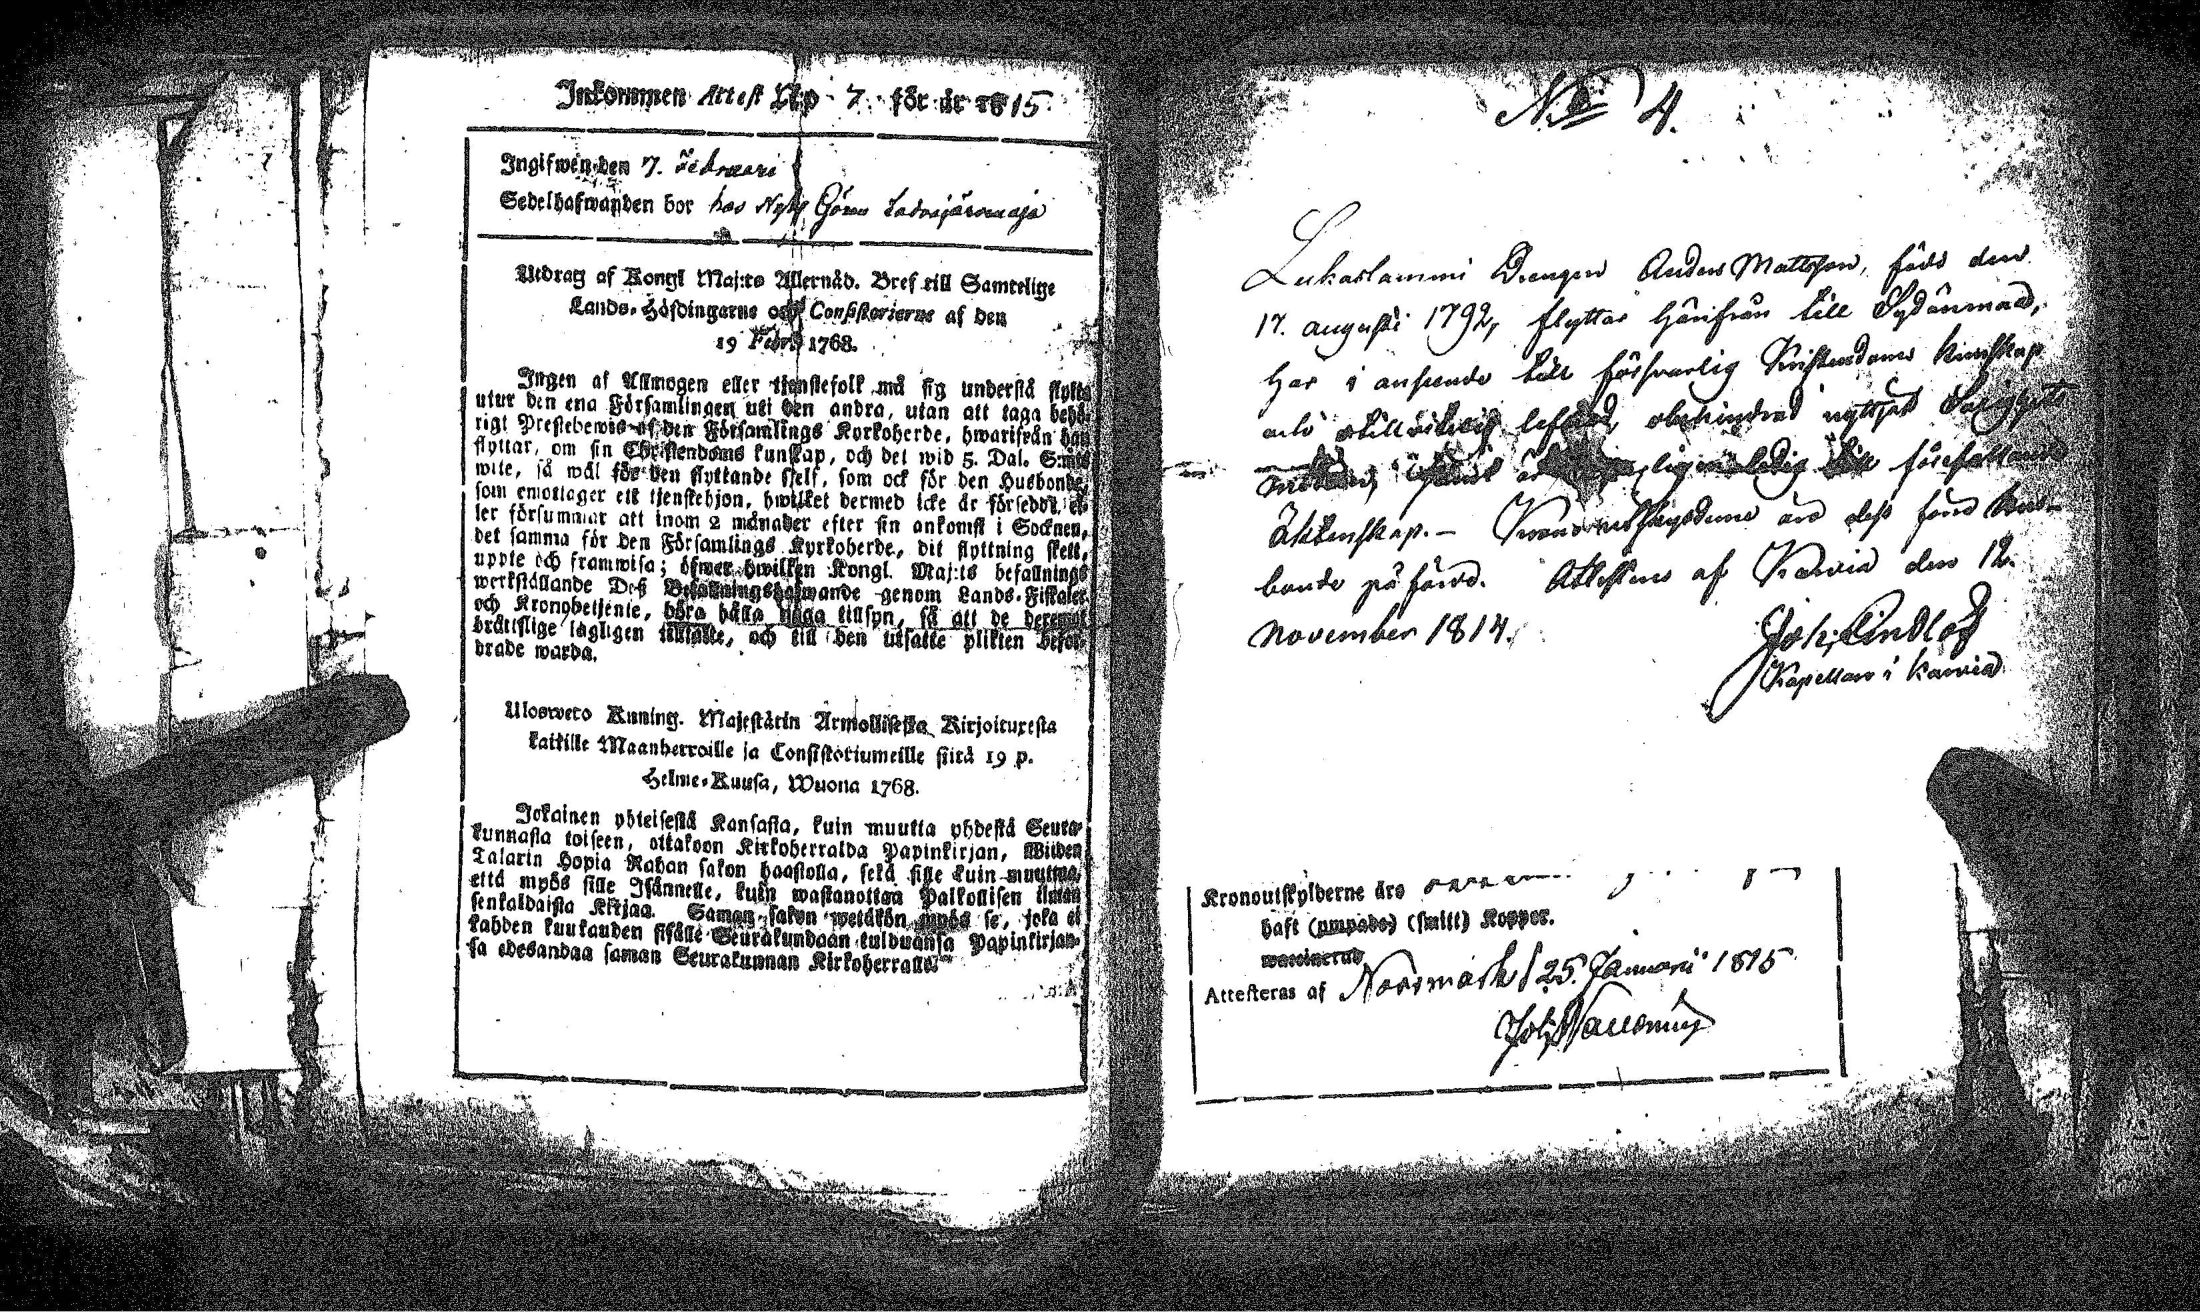 Inkommen Attest Litt. 7. för år 1815
Ingifwen den 7. Februari
Sedelhafwanden bor hos Nyby Göran
Utdrag af Kongl Maj:ts Allernåd. Bref till Samtelige
Lands-Höfdingarne och Consistorierne af den
19 Febr. 1768.
Ingen af Allmogen eller tjenstefolk må sig understå flytta
utur den ena Församlingen uti den andra, utan att taga behö-
rigt Prestebewis af den Församlings Kyrkoherde, hwarifrån han
flyttar, om sin Christendoms kunskap, och det wid 5. Dal. S:mts
wite, så wäl för den flyttande sjelf, som ock för den Husbonde,
som emottager ett tjenstehjon, hwilket dermed icke är försedt, el-
ler försummar att inom 2 månader efter sin ankomst i Socknen,
det samma för den Församlings Kyrkoherde, dit flyttning skett,
uppte och framwisa; öfwer hwilken Kongl. Maj:ts befallnings
werkställande Dess Befallningshafwande genom Lands-Fiskaler
och Kronobetjente, böra hålla noga tillsyn, så att de deremot
brättslige lagligen tilltalte, och till den utsatte plikten befor-
drade warda.
Ulosweto Kuning. Majestätin Armollisesta Kirjoituxesta
kaikille Maanherroille ja Consistoriumeille siitä 19 p.
Helme-Kuusa, Wuona 1768.
Jokainen yhteisestä Kansasta, kuin muutta yhdestä Seura-
kunnasta toiseen, ottakoon Kirkoherralda Papinkirjan, Wiiden
Talarin Hopia Rahan sakon haastolla, sekä sille kuin muuttaa,
että myös sille Isännelle, kuin wastanottaa Palkollisen ilman
senkaldaista Kirjaa. Saman sakon wetäkön myös se, joka ei
kahden kuukauden sisälle Seurakundaan tulduansa Papinkirjan-
sa edesandaa saman Seurakunnan Kirkoherralle.
No 4.
Lukaslammi Drengen Anders Mattsson, född den
17. augusti 1792, flyttar härifrån till Sydänmaa,
har i anseende till försvarlig Kristendoms kunskap
och lefnad, obehindrad nyttjat Salighets
medlen, är ledig till förefallande
Äktenskap. – Kronoutskylderne äro dess förra Hus-
bonde påförd. Attesteras af Karvia den 12.
November 1814.
Joh. Lindlöf
Kapellan i Karvia
Kronoutskylderne äro
haft (ympade) (smitt) Kopper.
Attesteras af Norrmark d 25. Januari 1815